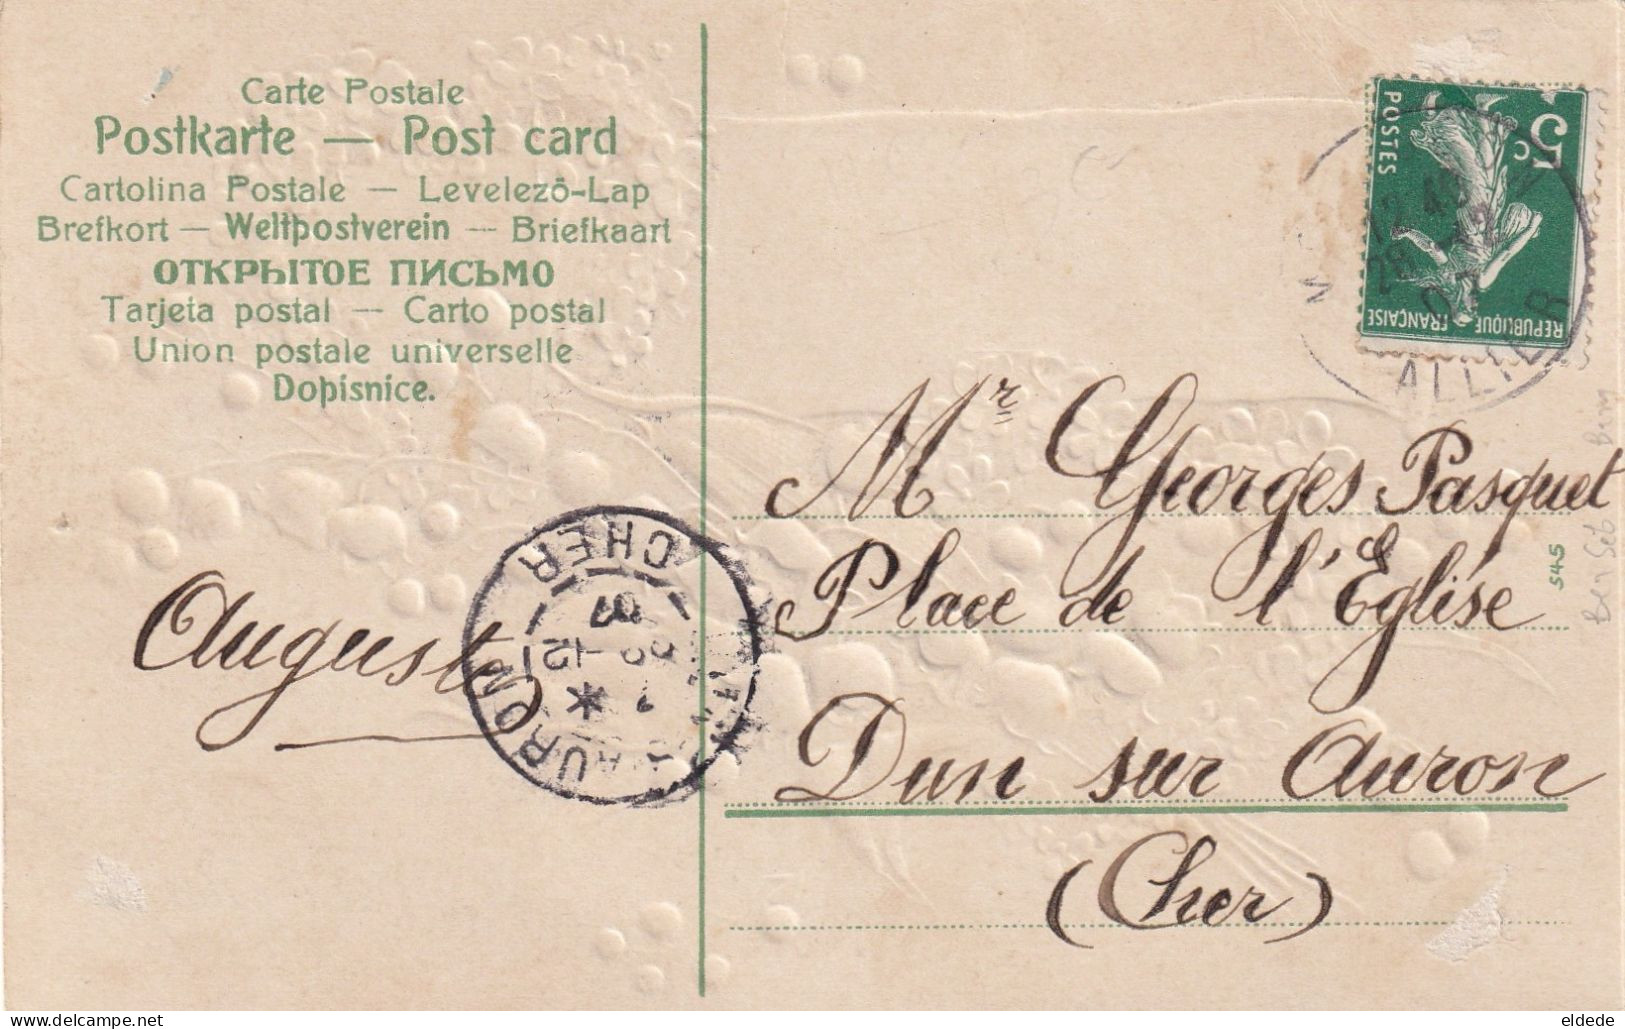 Carte Postale
Postkarte — Post card
Cartolina Postale — Levelező-Lap
Brefkort — Weltpostverein — Briefkaart
ОТКРЫТОЕ ПИСЬМО
Tarjeta postal — Carto postal
Union postale universelle
Dopisnice.
5c
POSTES
REPUBLIQUE FRANÇAISE
12 45
28 -12
07
ALLIER
Mr Georges Pasquet
Place de l'Église
Dun sur Auron
(Cher)
Auguste
AURON
CHER
-12
07
5425
delcampe.net
eldede